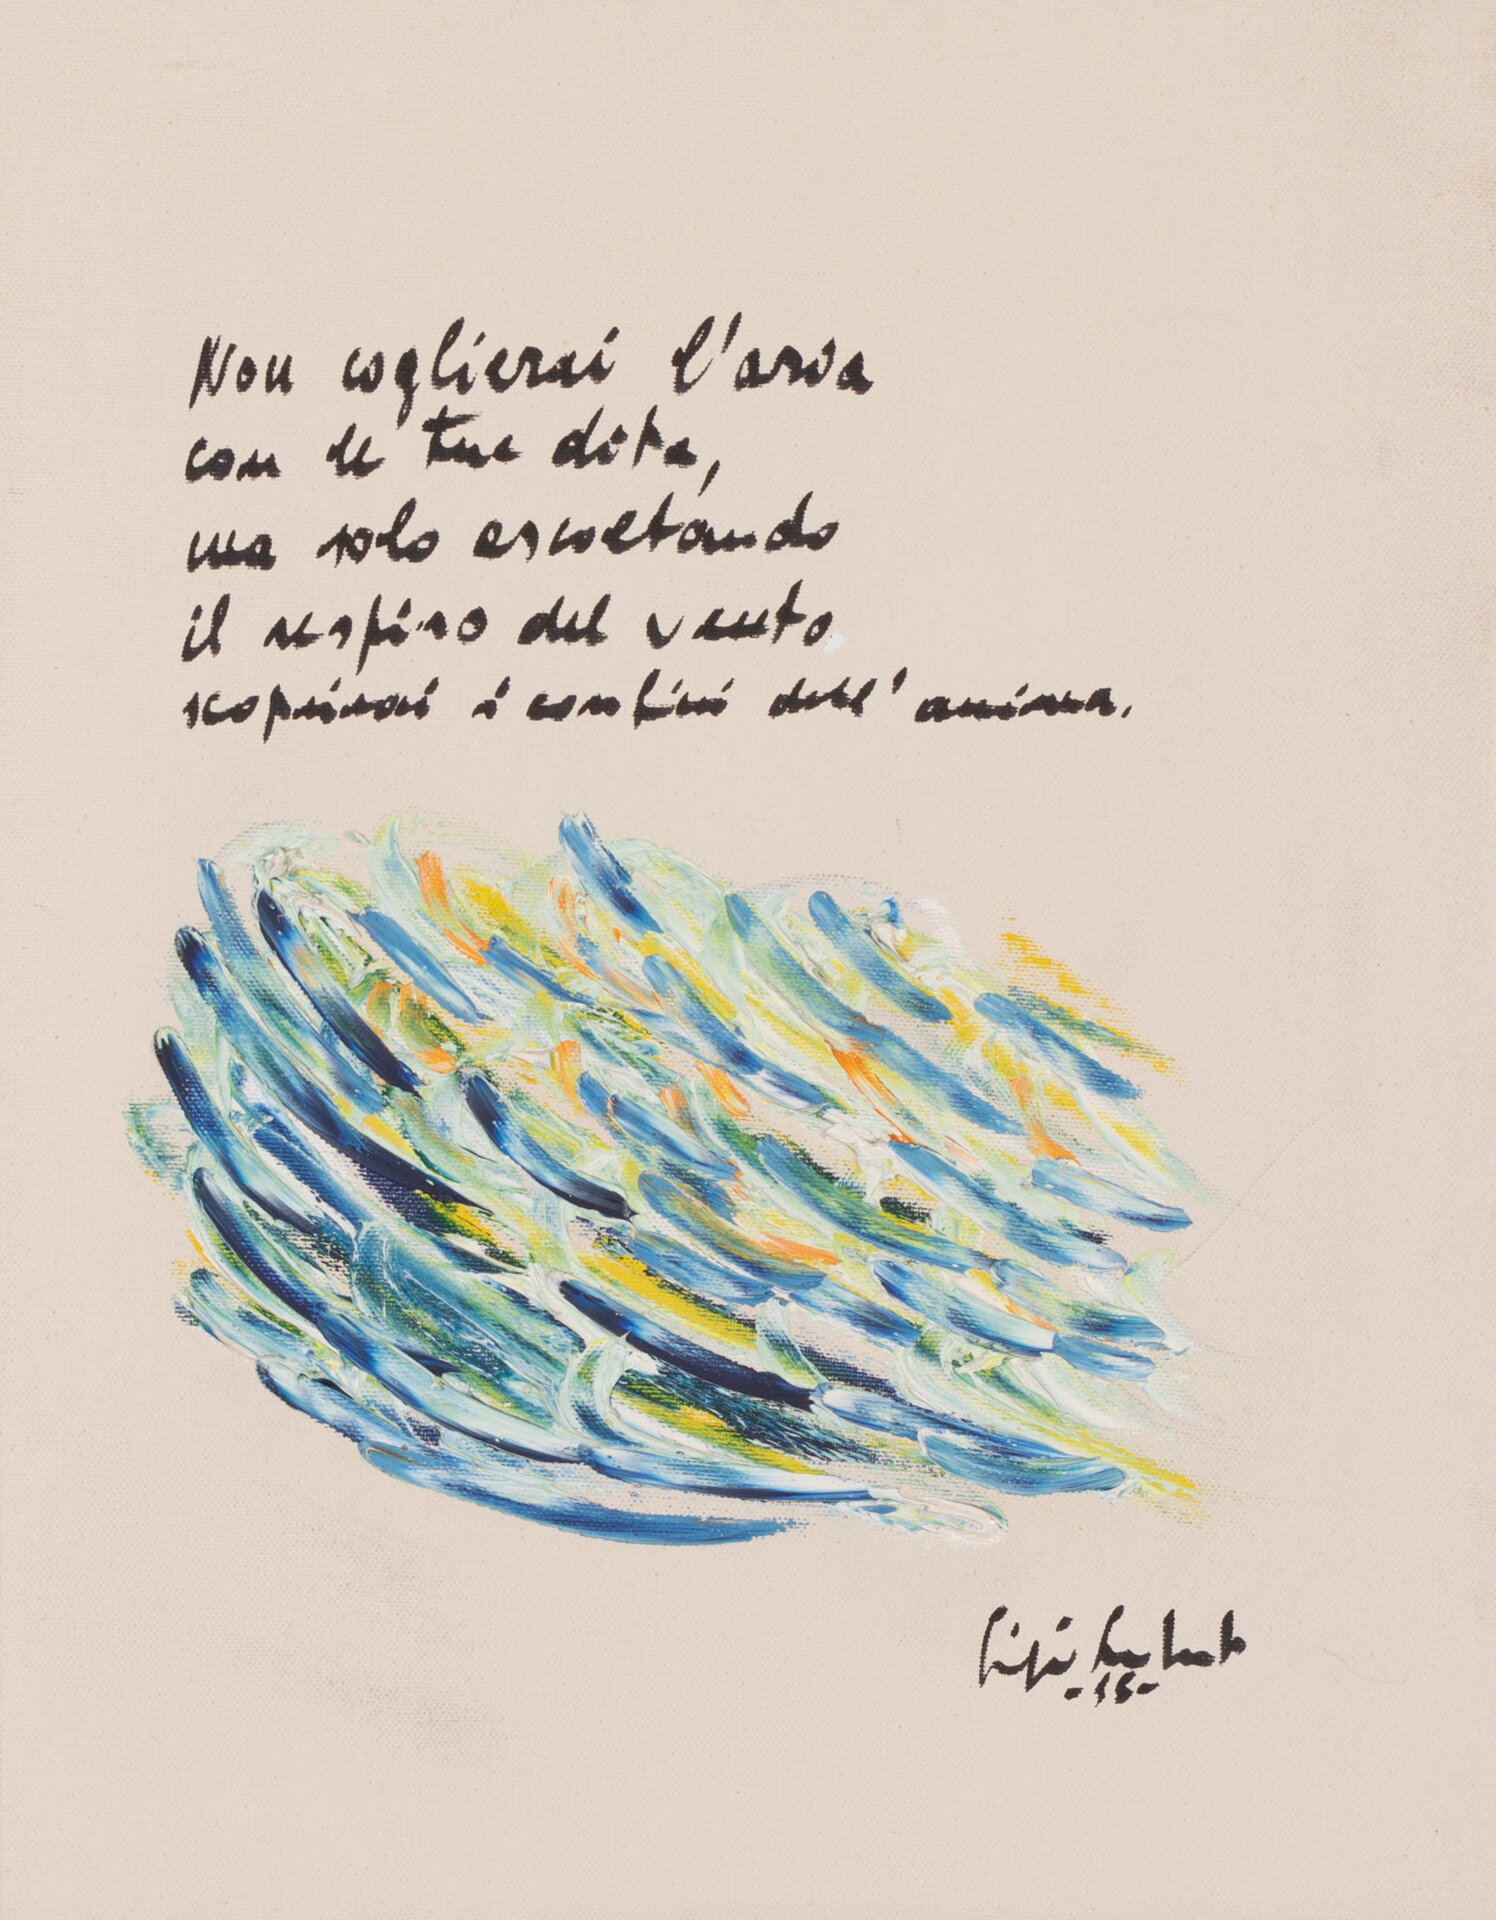 Non coglierai l'aria
con le tue dita,
ma solo ascoltando
il respiro del vento
scoprirai i confini dell'anima.
-15-